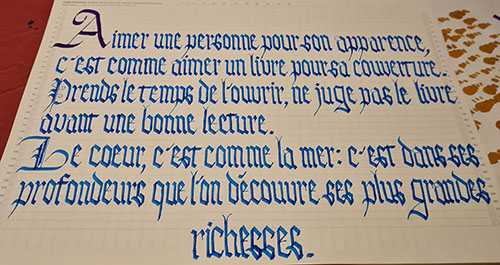 Aimer une personne pour son apparence,
c'est comme aimer un livre pour sa couverture.
Prends le temps de l'ouvrir, ne juge pas le livre
avant une bonne lecture.
Le coeur, c'est comme la mer: c'est dans ses
profondeurs que l'on découvre ses plus grandes
richesses.